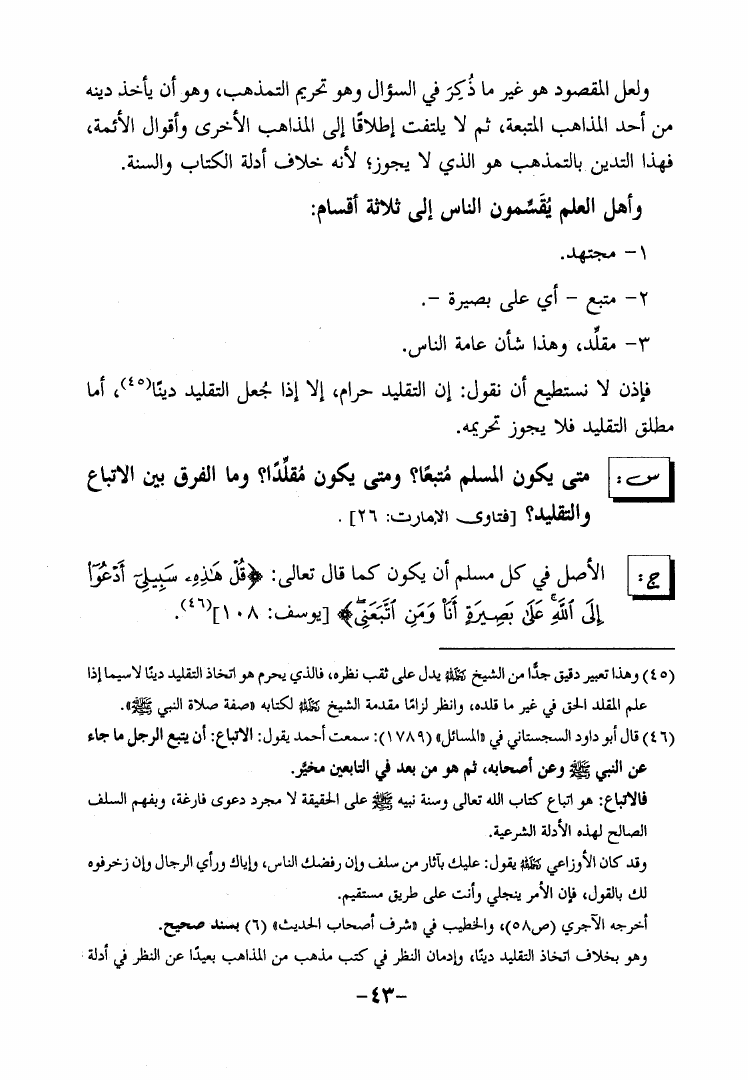 ولعل المقصود هو غير ما ذُكِرَ في السؤال وهو تحريم التمذهب، وهو أن يأخذ دينه
من أحد المذاهب المتبعة، ثم لا يلتفت إطلاقًا إلى المذاهب الأخرى وأقوال الأئمة،
فهذا التدين بالتمذهب هو الذي لا يجوز؛ لأنه خلاف أدلة الكتاب والسنة.
وأهل العلم يُقَسِّمون الناس إلى ثلاثة أقسام:
١- مجتهد.
٢- متبع - أي على بصيرة -.
٣- مقلِّد، وهذا شأن عامة الناس.
فإذن لا نستطيع أن نقول: إن التقليد حرام، إلا إذا جُعل التقليد دينًا(٤٥)، أما
مطلق التقليد فلا يجوز تحريمه.
س: متى يكون المسلم مُتبعًا؟ ومتى يكون مُقلِّدًا؟ وما الفرق بين الاتباع
والتقليد؟ [فتاوى الإمارت: ٢٦] .
ج: الأصل في كل مسلم أن يكون كما قال تعالى: ﴿قُلْ هَٰذِهِۦ سَبِيلِيٓ أَدْعُوٓاْ
إِلَى ٱللَّهِۚ عَلَىٰ بَصِيرَةٍ أَنَا۠ وَمَنِ ٱتَّبَعَنِيۖ﴾ [يوسف: ١٠٨](٤٦).
(٤٥) وهذا تعبير دقيق جدًّا من الشيخ رحمه الله يدل على ثقب نظره، فالذي يحرم هو اتخاذ التقليد دينًا لاسيما إذا
علم المقلد الحق في غير ما قلده، وانظر لزامًا مقدمة الشيخ رحمه الله لكتابه «صفة صلاة النبي ﷺ».
(٤٦) قال أبو داود السجستاني في «المسائل» (١٧٨٩): سمعت أحمد يقول: الاتباع: أن يتبع الرجل ما جاء
عن النبي ﷺ وعن أصحابه، ثم هو من بعد في التابعين مخيَّر.
فالاتباع: هو اتباع كتاب الله تعالى وسنة نبيه ﷺ على الحقيقة لا مجرد دعوى فارغة، وبفهم السلف
الصالح لهذه الأدلة الشرعية.
وقد كان الأوزاعي رحمه الله يقول: عليك بآثار من سلف وإن رفضك الناس، وإياك ورأي الرجال وإن زخرفوه
لك بالقول، فإن الأمر ينجلي وأنت على طريق مستقيم.
أخرجه الآجري (ص٥٨)، والخطيب في «شرف أصحاب الحديث» (٦) بسند صحيح.
وهو بخلاف اتخاذ التقليد دينًا، وإدمان النظر في كتب مذهب من المذاهب بعيدًا عن النظر في أدلة
-٤٣-